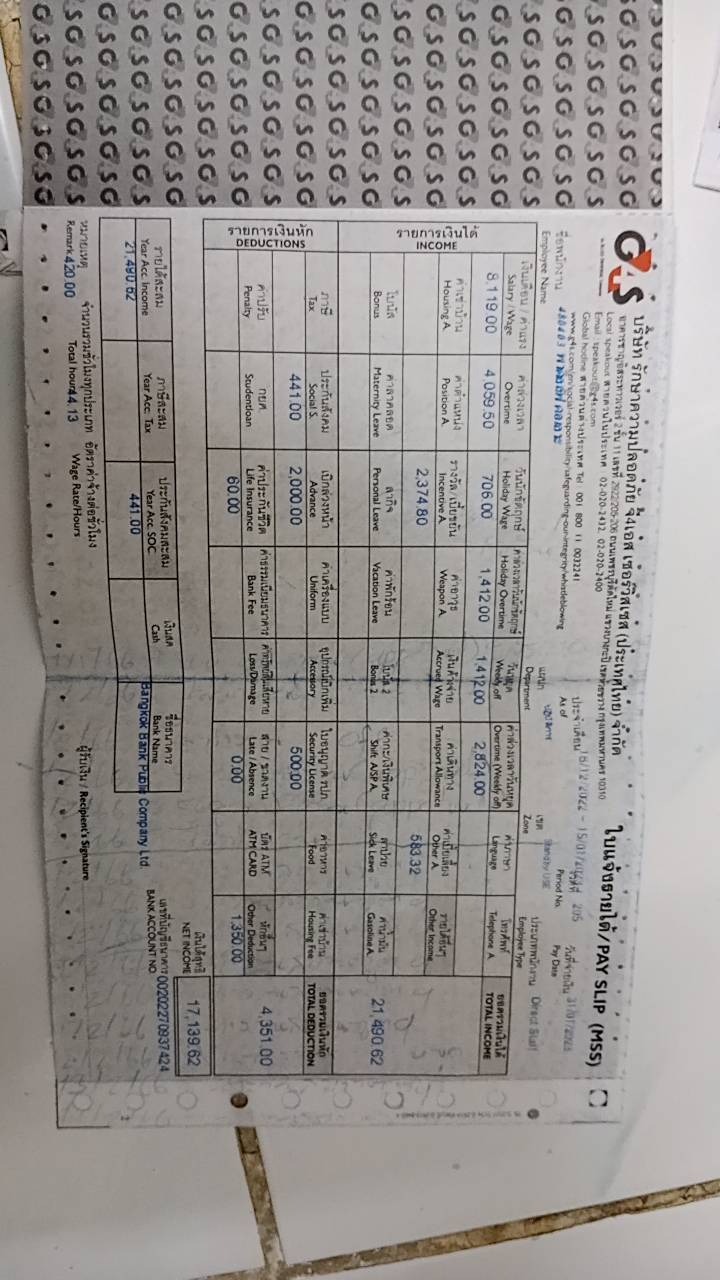 G4S
บริษัท รักษาความปลอดภัย จี4เอส เซอร์วิสเซส (ประเทศไทย) จำกัด
ใบแจ้งรายได้ / PAY SLIP (MSS)
Local speakout สายด่วนในประเทศ 02-020-2432, 02-020-2400
Email : speakout@g4s.com
Global hotline สายด่วนต่างประเทศ Tel 001 800 11 0032241
ประจำเดือน 16/12/2022 - 15/01/2023 งวดที่ 205 วันที่จ่ายเงิน 31/01/2023
As of Period No. Pay Date
ชื่อพนักงาน 480403
Employee Name
แผนก ปฏิบัติการ เขต ประเภทพนักงาน Direct Staff
Department Zone Employee Type
รายการเงินได้
INCOME
เงินเดือน / ค่าแรง ค่าล่วงเวลา วันนักขัตฤกษ์ ค่าล่วงเวลาวันนักขัตฤกษ์ วันหยุด ค่าล่วงเวลาวันหยุด ค่าภาษา โทรศัพท์ ยอดรวมเงินได้
Salary / Wage Overtime Holiday Wage Holiday Overtime Weekly off Overtime (Weekly off) Language Telephone A. TOTAL INCOME
8,119.00 4,059.50 706.00 1,412.00 1,412.00 2,824.00
ค่าเช่าบ้าน ค่าตำแหน่ง รางวัล / เบี้ยขยัน ค่าอาวุธ เงินค้างจ่าย ค่าเดินทาง ค่าเบี้ยเลี้ยง รายได้อื่นๆ
Housing A. Position A. Incentive A. Weapon A. Accrued Wage Transport Allowance Other A. Other Income
2,374.80 583.32
โบนัส ค่าลาคลอด ลากิจ ค่าพักร้อน โบนัส 2 ค่ากะ/เงินพิเศษ ลาป่วย ค่าน้ำมัน
Bonus Maternity Leave Personal Leave Vacation Leave Bonus 2 Shift A/SP.A. Sick Leave Gasoline A.
21,490.62
รายการเงินหัก
DEDUCTIONS
ภาษี ประกันสังคม เบิกล่วงหน้า ค่าเครื่องแบบ อุปกรณ์เบิกเพิ่ม ใบอนุญาต รปภ. ค่าอาหาร ค่าเช่าบ้าน ยอดรวมเงินหัก
Tax Social S. Advance Uniform Accessory Security License Food Housing Fee TOTAL DEDUCTION
441.00 2,000.00 500.00
ค่าปรับ กยศ. ค่าประกันชีวิต ค่าธรรมเนียมธนาคาร ค่าทรัพย์สินเสียหาย สาย / ขาดงาน บัตร ATM หักอื่นๆ
Penalty Scudentloan Life Insurance Bank Fee Loss/Damage Late / Absence ATM CARD Other Deduction
4,351.00
60.00 0.00 1,350.00
เงินได้สุทธิ
NET INCOME 17,139.62
รายได้สะสม ภาษีสะสม ประกันสังคมสะสม เงินสด ชื่อธนาคาร
Year Acc. Income Year Acc. Tax Year Acc. SOC. Cash Bank Name
21,490.62 441.00 Bangkok Bank Public Company Ltd
เลขที่บัญชีธนาคาร 00202270937424
BANK ACCOUNT NO.
หมายเหตุ จำนวนรวมชั่วโมงทุกประเภท อัตราค่าจ้างต่อชั่วโมง
Remark 420.00 Total hour 44.13 Wage Rate/Hours
ผู้รับเงิน / Recipient's Signature